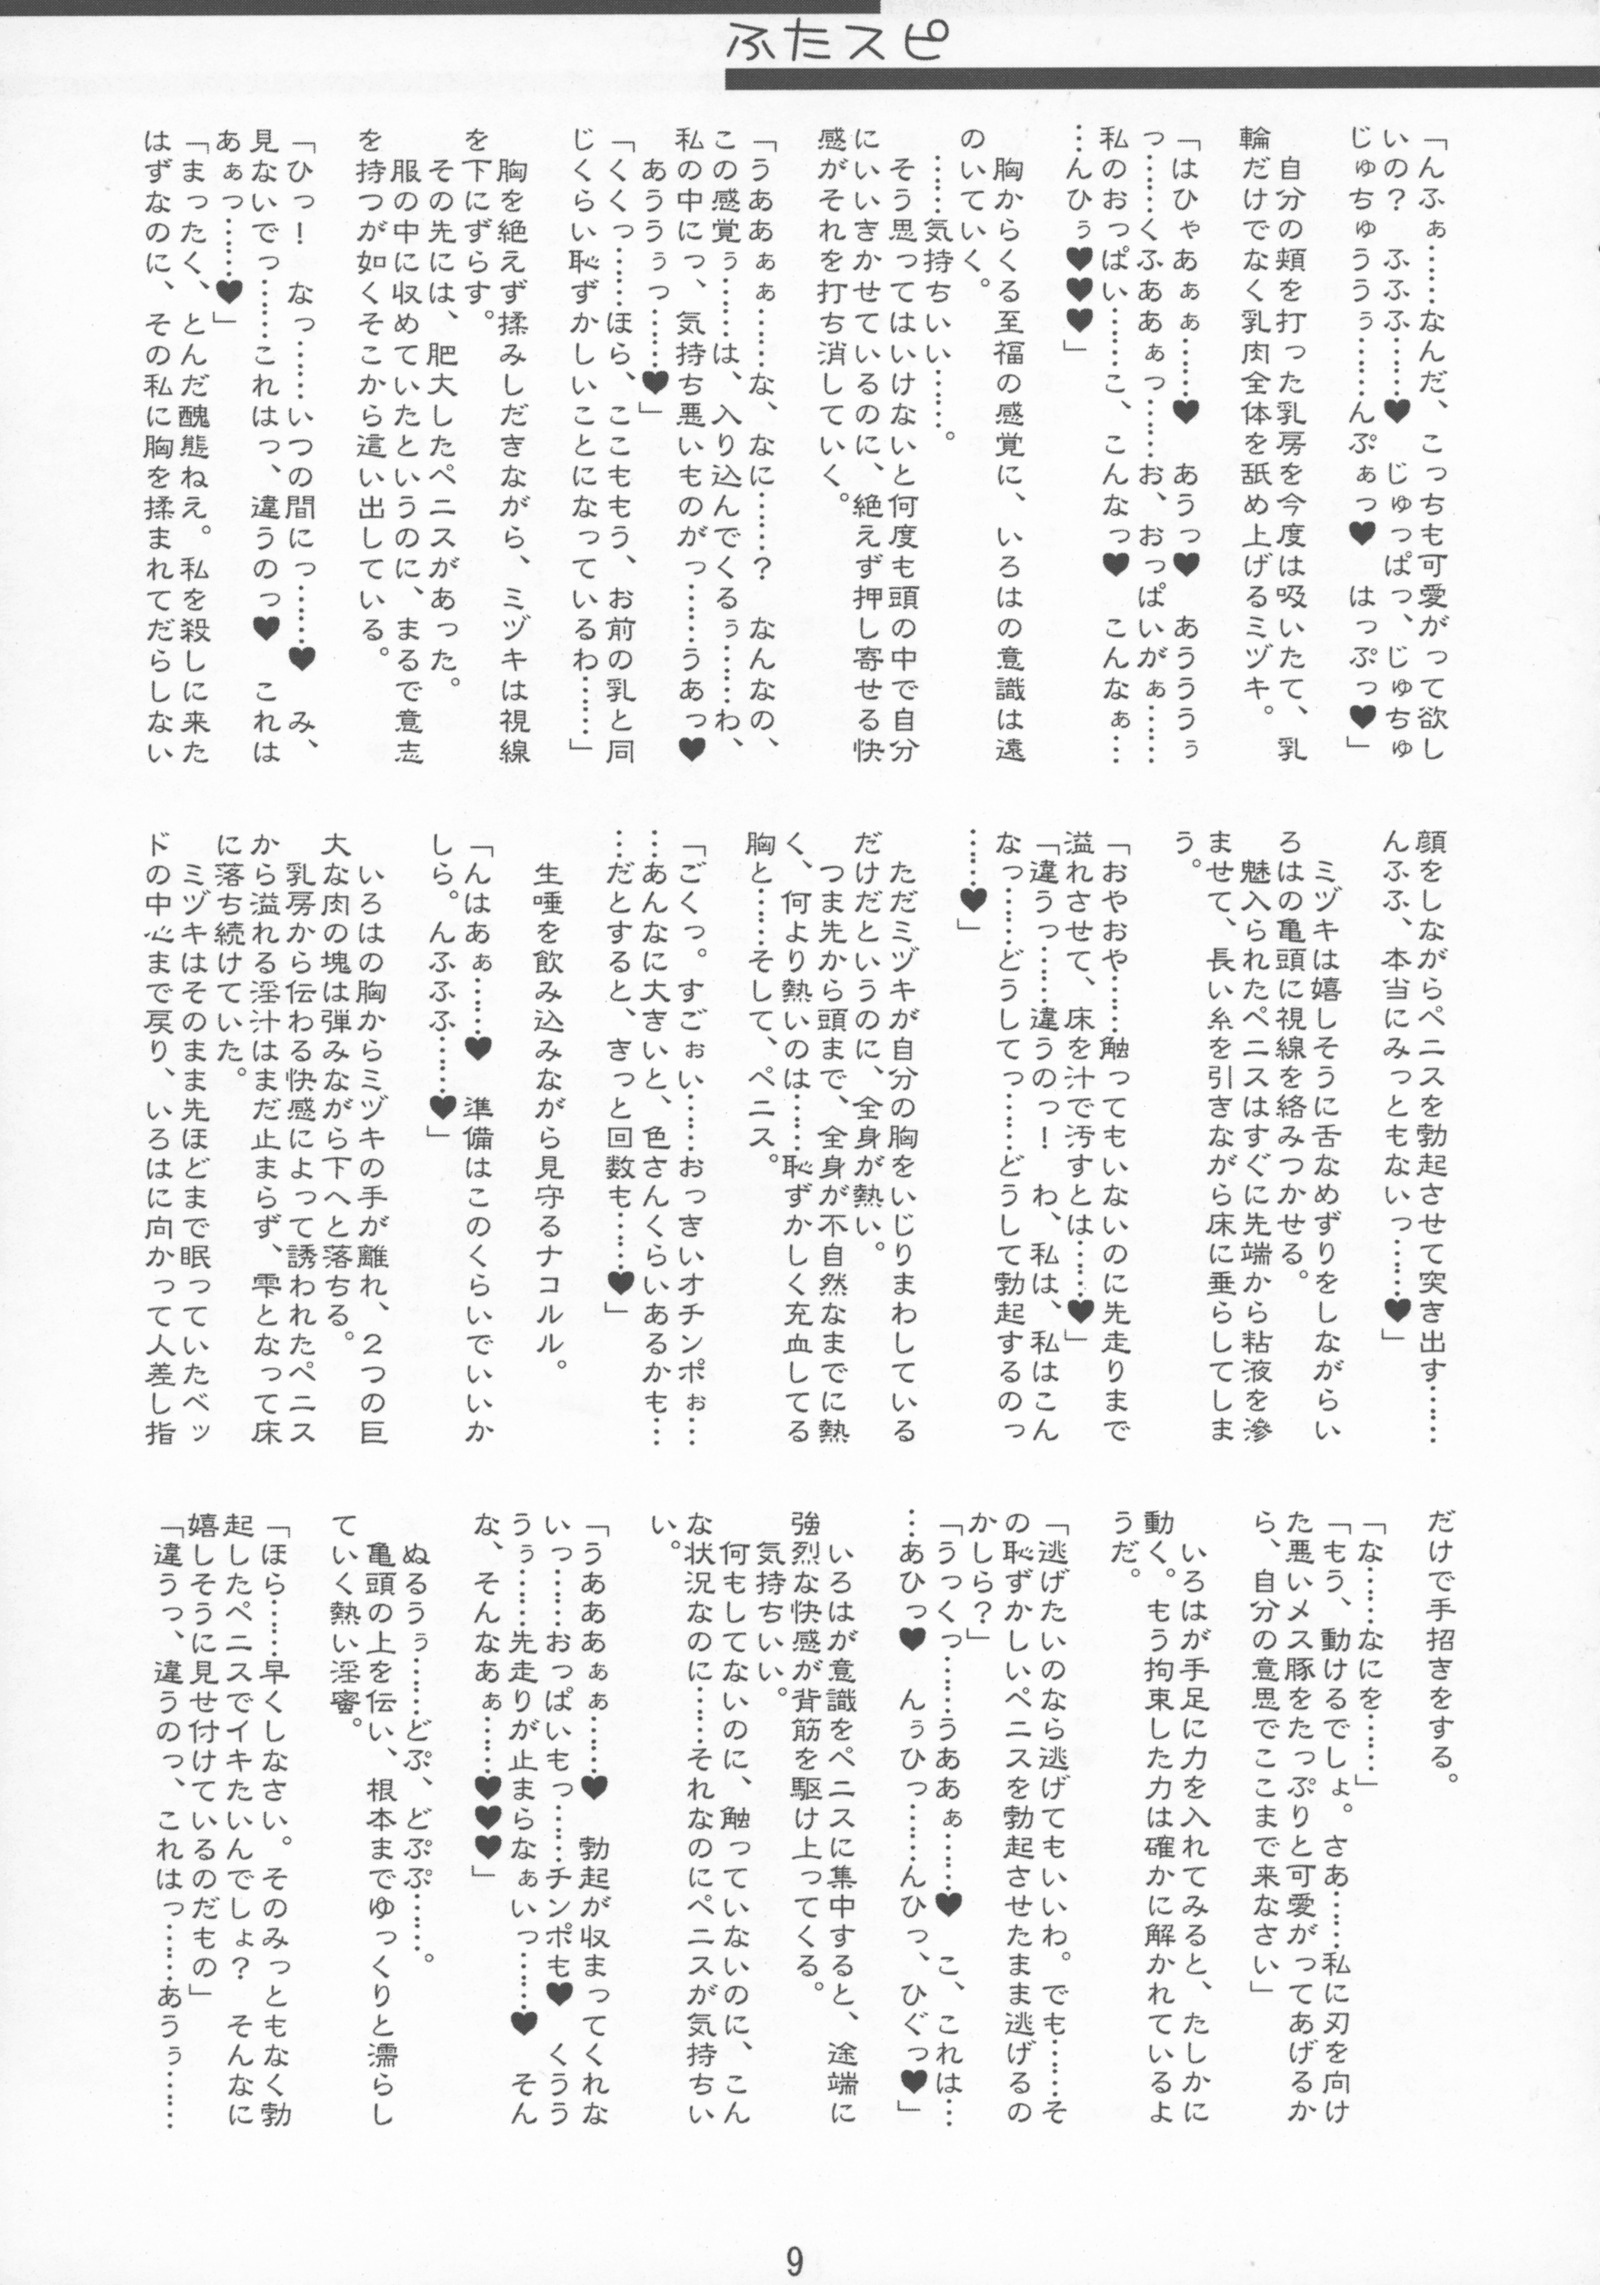 ふたスピ
「んふぁ……なんだ、こっちも可愛がって欲し
いの？　ふふふ……♥　じゅっぱっ、じゅちゅ
じゅちゅううぅ……んぷぁっ♥　はっぷっ♥」
　自分の頬を打った乳房を今度は吸いたて、乳
輪だけでなく乳肉全体を舐め上げるミヅキ。
「はひゃあぁぁ……♥　あうっ♥　あうううぅ
っ……くふああぁっ……お、おっぱいがぁ……
私のおっぱい……こ、こんなっ♥　こんなぁ…
…んひぅ♥♥♥」
　胸からくる至福の感覚に、いろはの意識は遠
のいていく。
　……気持ちいい……。
　そう思ってはいけないと何度も頭の中で自分
にいいきかせているのに、絶えず押し寄せる快
感がそれを打ち消していく。
「うああぁぁ……な、なに……？　なんなの、
この感覚ぅ……は、入り込んでくるぅ……わ、
私の中にっ、気持ち悪いものがっ……うあっ♥
　あううぅっ……♥」
「くくっ……ほら、ここももう、お前の乳と同
じくらい恥ずかしいことになっているわ……」
　胸を絶えず揉みしだきながら、ミヅキは視線
を下にずらす。
　その先には、肥大したペニスがあった。
　服の中に収めていたというのに、まるで意志
を持つが如くそこから這い出している。
「ひっ！　なっ……いつの間にっ……♥　み、
見ないでっ……これはっ、違うのっ♥　これは
あぁっ……♥」
「まったく、とんだ醜態ねえ。私を殺しに来た
はずなのに、その私に胸を揉まれてだらしない
顔をしながらペニスを勃起させて突き出す……
んふふ、本当にみっともないっ……♥」
　ミヅキは嬉しそうに舌なめずりをしながらい
ろはの亀頭に視線を絡みつかせる。
　魅入られたペニスはすぐに先端から粘液を滲
ませて、長い糸を引きながら床に垂らしてしま
う。
「おやおや……触ってもいないのに先走りまで
溢れさせて、床を汁で汚すとは……♥」
「違うっ……違うのっ！　わ、私は、私はこん
なっ……どうしてっ……どうして勃起するのっ
……♥」
　ただミヅキが自分の胸をいじりまわしている
だけだというのに、全身が熱い。
　つま先から頭まで、全身が不自然なまでに熱
く、何より熱いのは……恥ずかしく充血してる
胸と……そして、ペニス。
「ごくっ。すごぉい……おっきいオチンポぉ…
…あんなに大きいと、色さんくらいあるかも…
…だとすると、きっと回数も……♥」
　生唾を飲み込みながら見守るナコルル。
「んはあぁ……♥　準備はこのくらいでいいか
しら。んふふふ……♥」
　いろはの胸からミヅキの手が離れ、２つの巨
大な肉の塊は弾みながら下へと落ちる。
　乳房から伝わる快感によって誘われたペニス
から溢れる淫汁はまだ止まらず、雫となって床
に落ち続けていた。
　ミヅキはそのまま先ほどまで眠っていたベッ
ドの中心まで戻り、いろはに向かって人差し指
だけで手招きをする。
「な……なにを……」
「もう、動けるでしょ。さあ……私に刃を向け
た悪いメス豚をたっぷりと可愛がってあげるか
ら、自分の意思でここまで来なさい」
　いろはが手足に力を入れてみると、たしかに
動く。もう拘束した力は確かに解かれているよ
うだ。
「逃げたいのなら逃げてもいいわ。でも……そ
の恥ずかしいペニスを勃起させたまま逃げるの
かしら？」
「うっくっ……うああぁ……♥　こ、これは…
…あひっ♥　んぅひっ……んひっ、ひぐっ♥」
　いろはが意識をペニスに集中すると、途端に
強烈な快感が背筋を駆け上ってくる。
　気持ちいい。
　何もしてないのに、触っていないのに、こん
な状況なのに……それなのにペニスが気持ちい
い。
「うあああぁぁ……♥　勃起が収まってくれな
いっ……おっぱいもっ……チンポも♥　くうう
うぅ……先走りが止まらなぁいっ……♥　そん
な、そんなあぁ……♥♥♥」
　ぬるうぅ……どぷ、どぷぷ……。
　亀頭の上を伝い、根本までゆっくりと濡らし
ていく熱い淫蜜。
「ほら……早くしなさい。そのみっともなく勃
起したペニスでイキたいんでしょ？　そんなに
嬉しそうに見せ付けているのだもの」
「違うっ、違うのっ、これはっ……あうぅ……
9